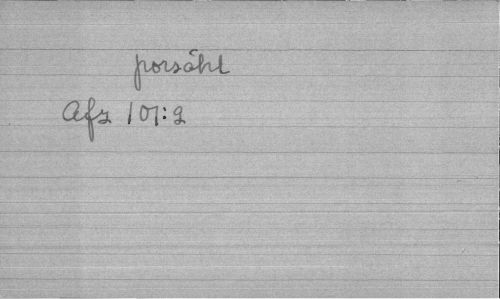 porsåht
Afz 101:2